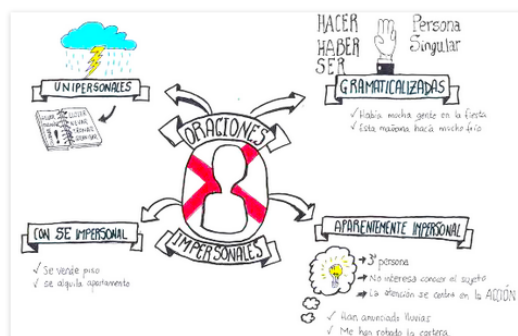 HACER
HABER
SER
Persona
Singular
UNIPERSONALES
GRAMATICALIZADAS
✓ Había mucha gente en la fiesta
✓ Esta mañana hacía mucho frío
ORACIONES
IMPERSONALES
CON SE IMPERSONAL
✓ Se vende piso
✓ se alquila apartamento
APARENTEMENTE IMPERSONAL
→ 3ª persona
→ No interesa conocer el sujeto
→ La atención se centra en la ACCIÓN
✓ Han anunciado lluvias
✓ Me han robado la cartera